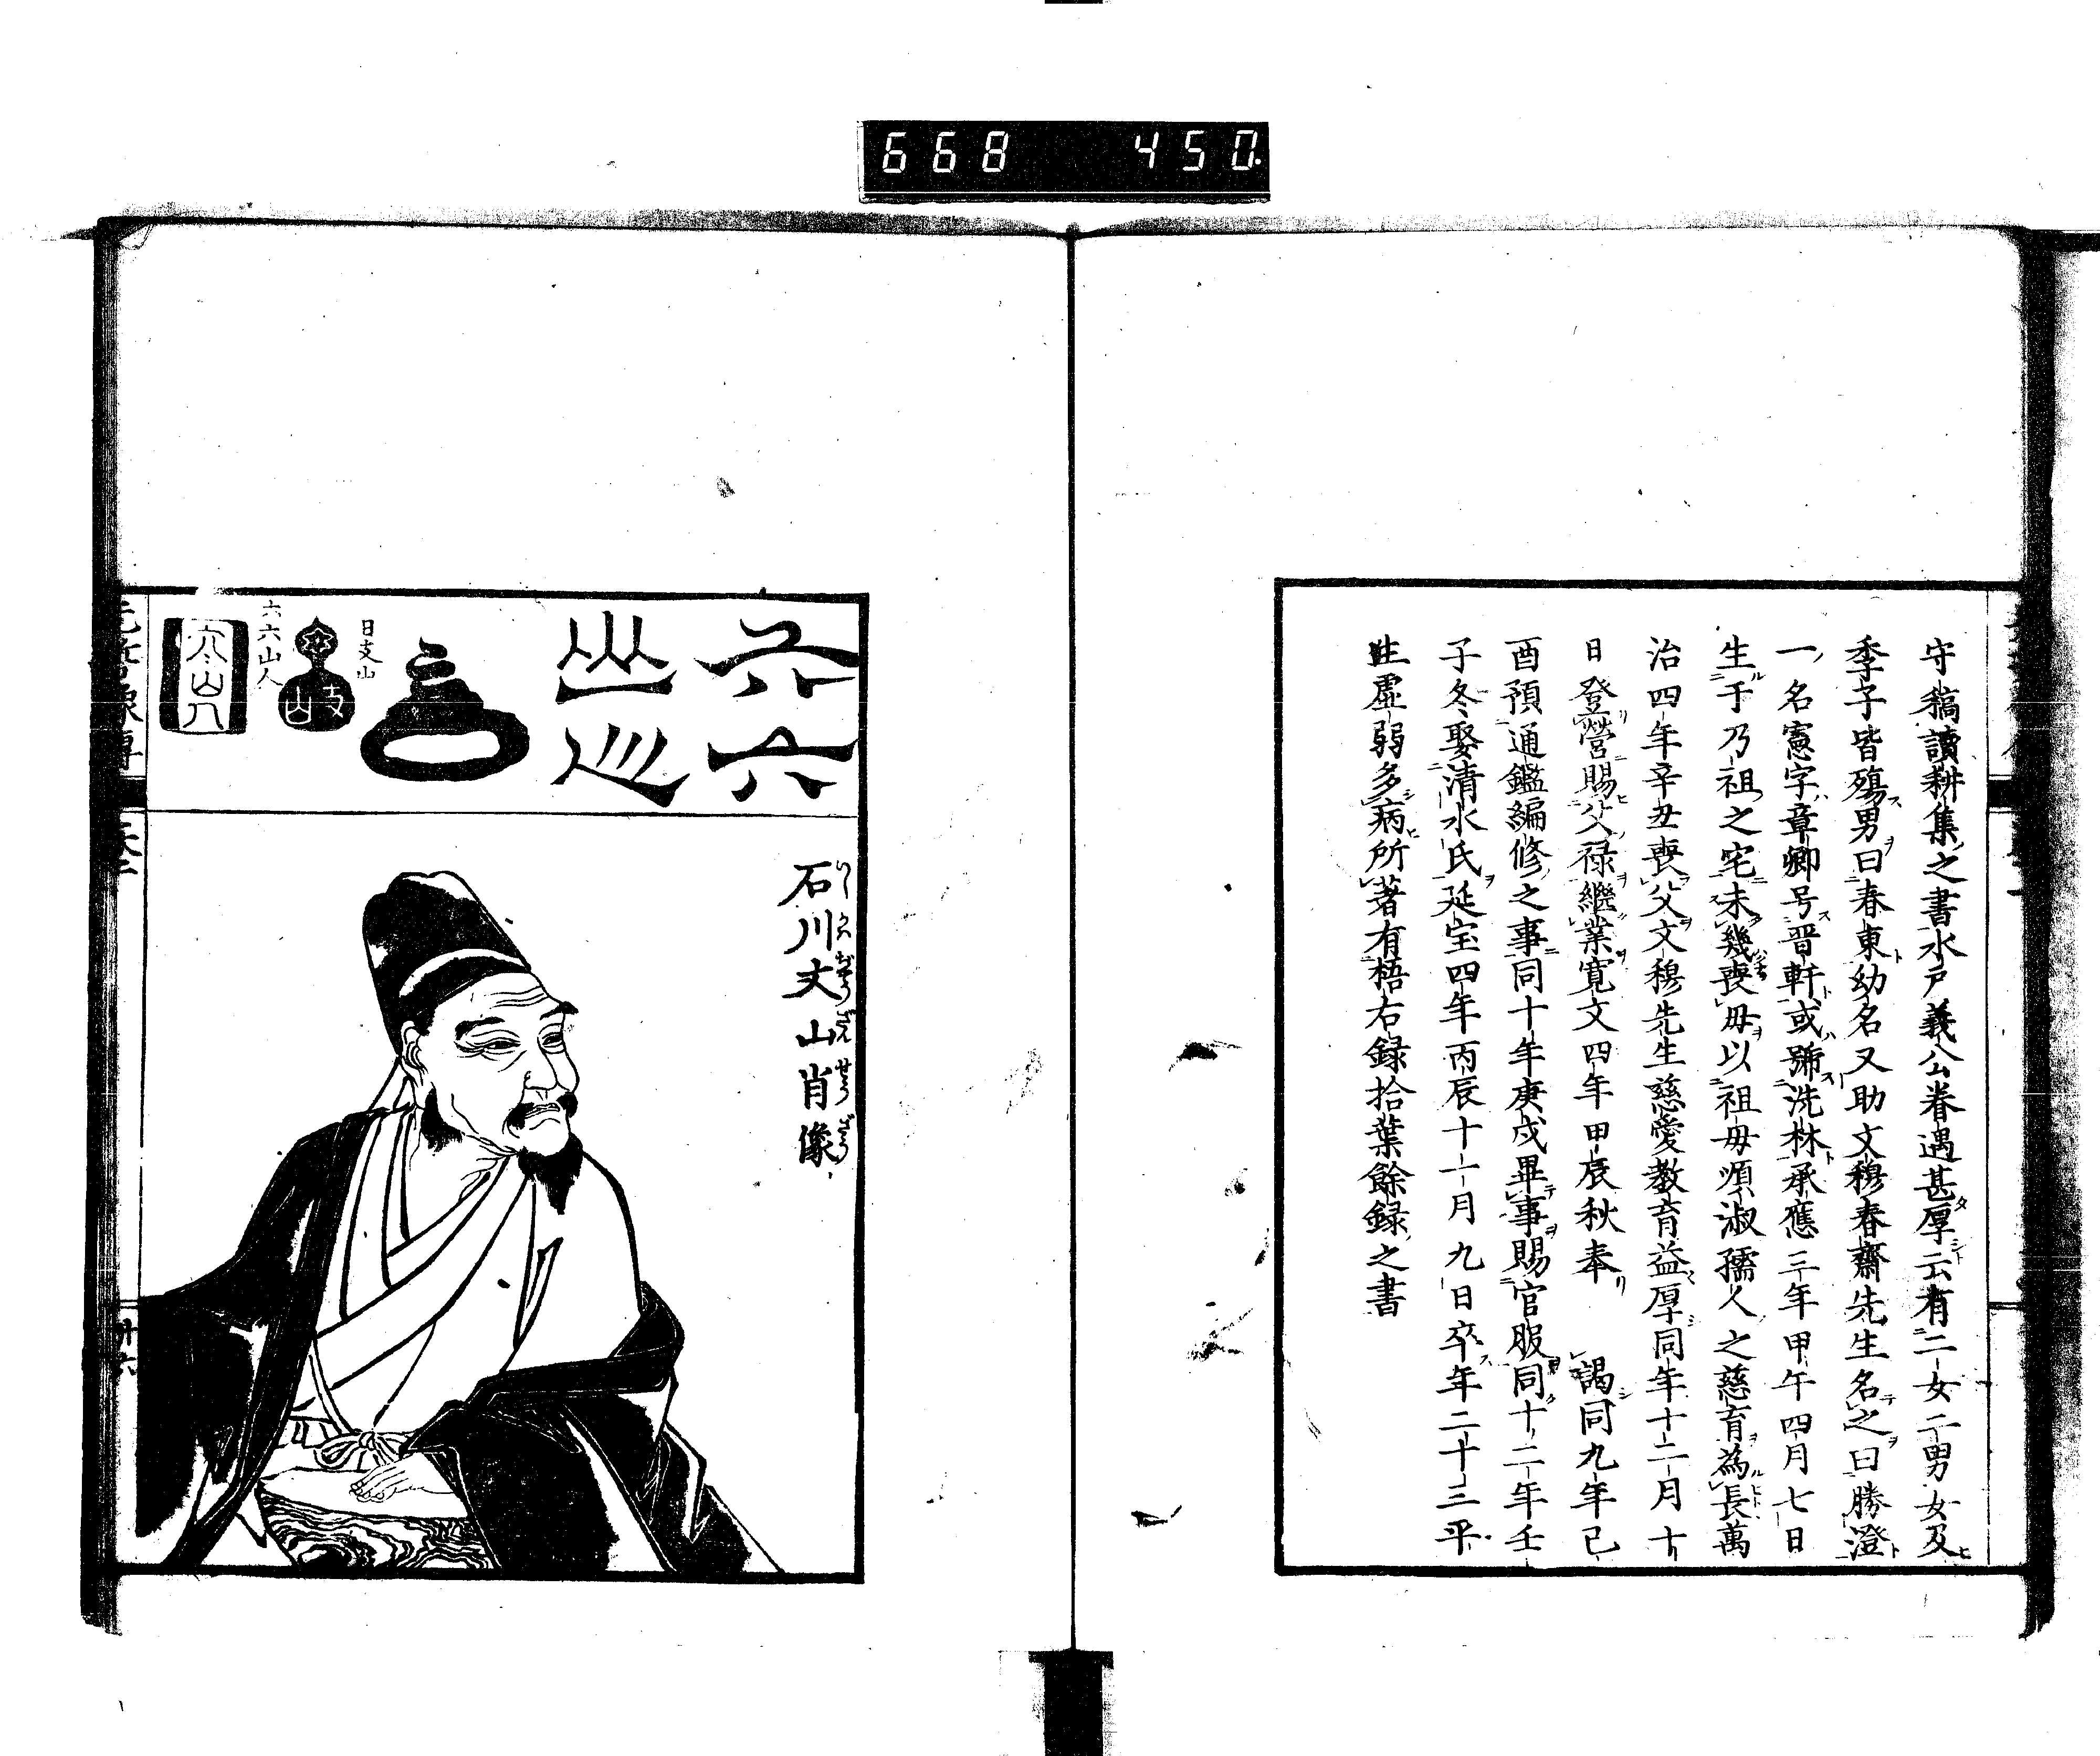 668 450
守稿讀耕集之書水戸義公眷遇甚厚云有二女二男女及
季子皆殤男曰春東幼名又助文穆春齋先生名之曰勝澄
一名憲字章卿号晋軒或號洗林承應三年甲午四月七日
生于乃祖之宅未幾喪母以祖母順淑孺人之慈育為長萬
治四年辛丑喪父文穆先生慈愛教育益厚同年十二月十
日登營賜父禄繼業寛文四年甲辰秋奉 謁同九年己
酉預通鑑編修之事同十年庚戌畢事賜官服同十二年壬
子冬娶清水氏延宝四年丙辰十一月九日卒年二十三平
生虚弱多病所著有梧右録拾葉餘録之書
六六
山
日支山
支山
六六山人
六六山人
石川丈山肖像
いしかハぢやうざんせうざう
廿六